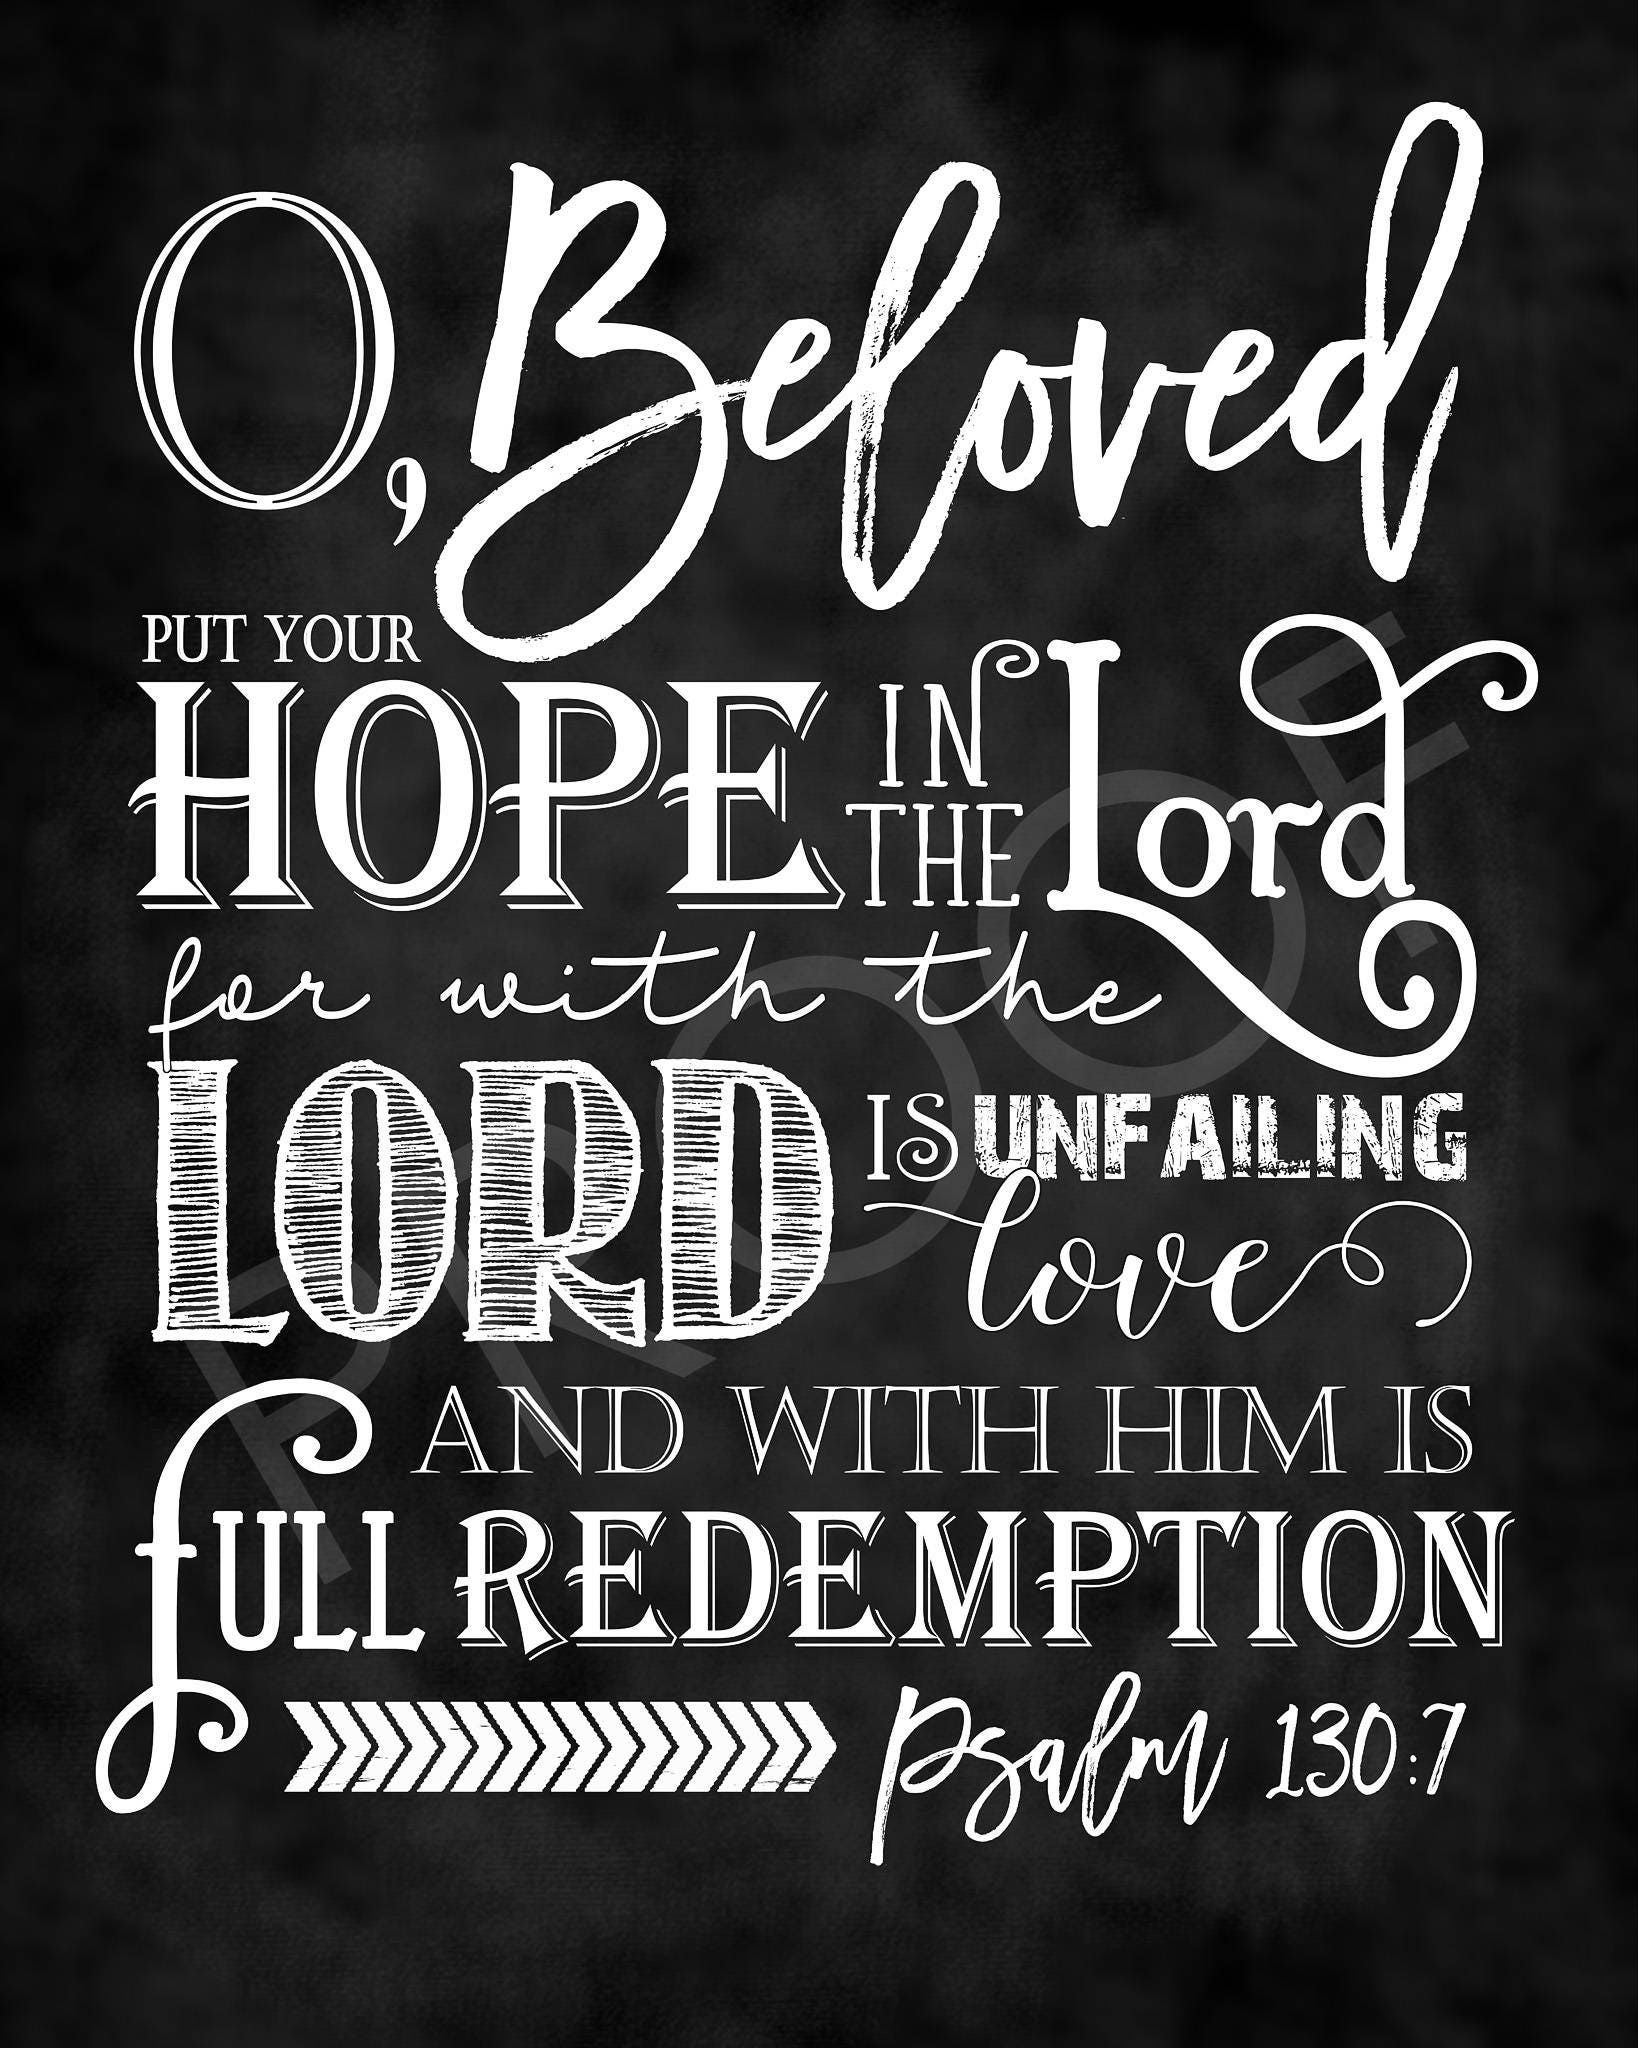 O, Beloved
PUT YOUR
HOPE IN THE Lord
for with the
LORD IS UNFAILING
love
AND WITH HIM IS
fULL REDEMPTION
Psalm 130:7
PROOF